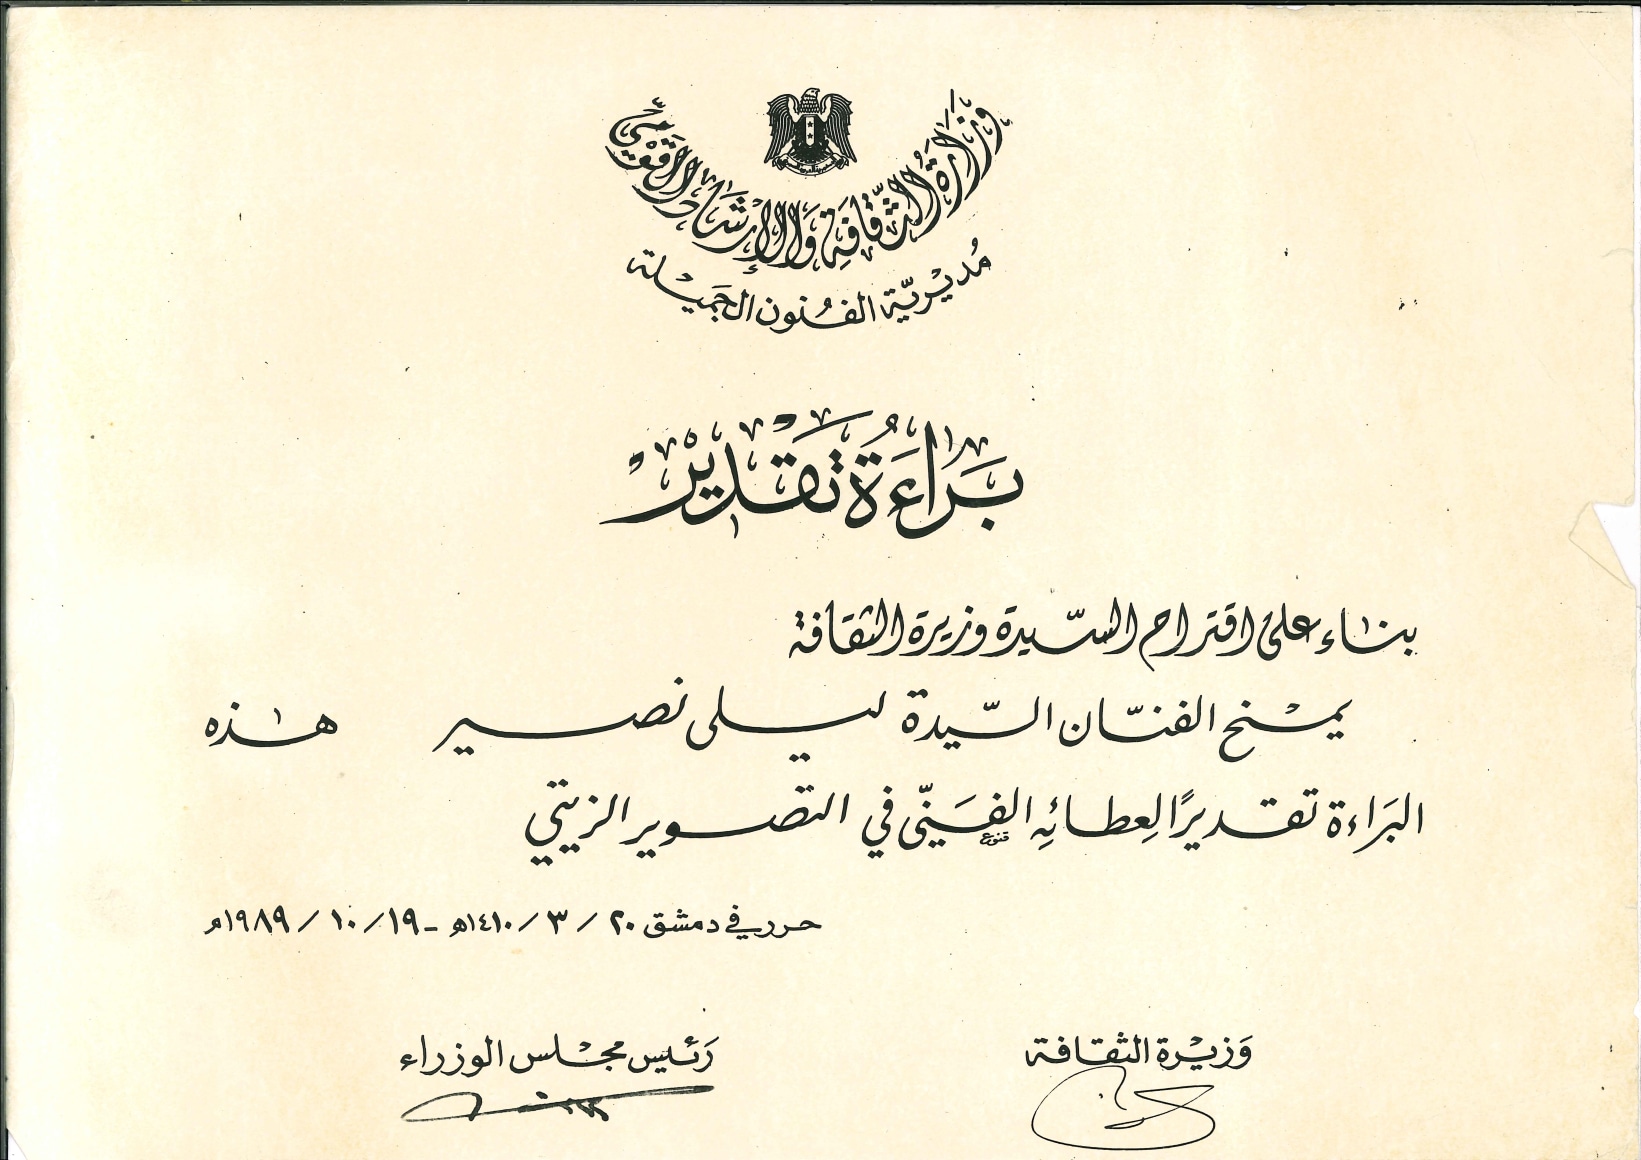 وزارة الثقافة والإرشاد القومي
مديرية الفنون الجميلة
براءة تقدير
بناء على اقتراح السيدة وزيرة الثقافة
يمنح الفنان السيدة ليلى نصير هذه
البراءة تقديرًا لعطائه الفني في التصوير الزيتي
حرر في دمشق ٢٠ / ٣ / ١٤١٠هـ - ١٩ / ١٠ / ١٩٨٩م
وزيرة الثقافة
رئيس مجلس الوزراء